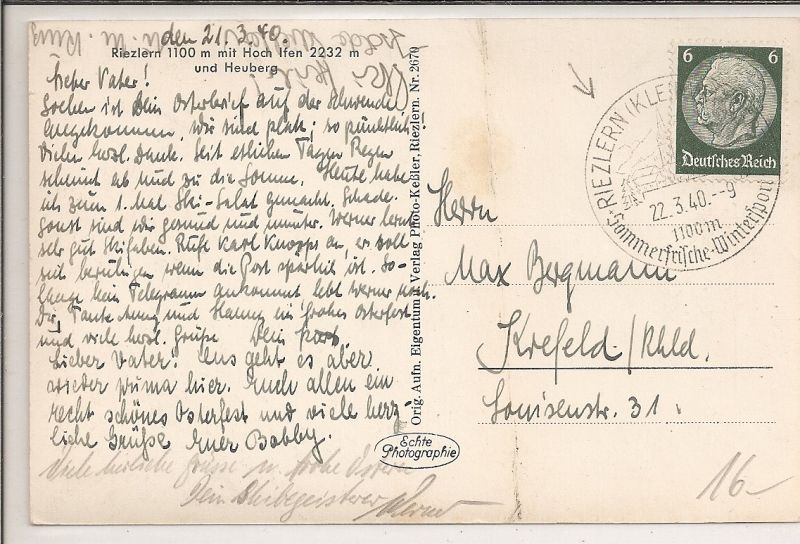 den 21.3.40.
Riezlern 1100 m mit Hoch Ifen 2232 m
und Heuberg
Ski Heil!
Lieber Vater!
Soeben ist Dein Osterbrief auf der Schwende
angekommen, wir sind platt; so pünktlich!
Vielen herzl. Dank. Seit etlichen Tagen Regen
schneit ab und zu die Sonne. Heute habe
ich zum 1. mal Ski-Salat gemacht. Schade.
Sonst sind wir gesund und munter. Werner lernt
sehr gut Skifahren. Rufe Karl an, er soll
sich beruhigen wenn die Post spärlich ist. So-
lange kein Telegramm ankommt lebt Werner noch.
Dir, Tante und Hanny ein frohes Osterfest
und viele herzl. Grüße Dein
Lieber Vater! Uns geht es aber
wieder prima hier. Euch allen ein
recht schönes Osterfest und viele herz-
liche Grüße Euer Bobby.
Viele herzliche Grüsse u. frohe Ostern
Dein Skibegeisterter Werner
Orig. Aufn. Eigentum u. Verlag Photo-Keßler, Riezlern. Nr. 2670
Echte
Photographie
6 6
Deutsches Reich
RIEZLERN (KLE
22.3.40.--9
1100m
Sommerfrische-Wintersport
Herrn
Max Bergmann
Krefeld/Rhld.
Louisenstr. 31.
16-